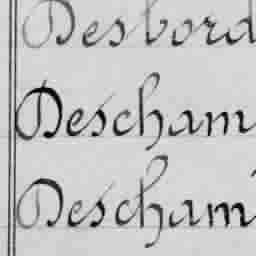 Desbord
Descham
Descham